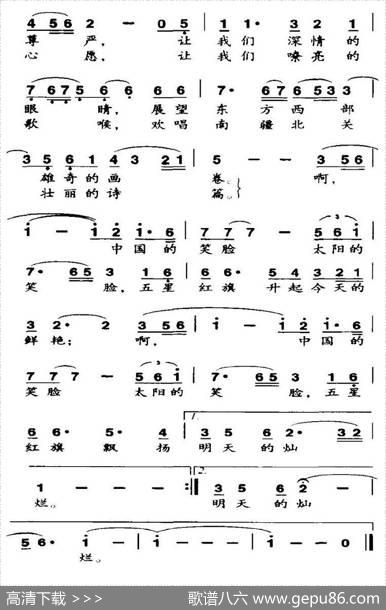 4 5 6 2 - 0 5 | 1 1· 3 2 1
尊 严, 让 我们 深情的
心 愿, 让 我们 嘹亮的
7 6 7 5 6 6 5 | 7· 6 7 6 5 3
眼 睛, 展望 东 方西部
歌 喉, 欢唱 南 疆北关
3 5 6 1 4 3 2 1 | 5 - - 3 5 6
雄奇的画 卷。 啊,
壮丽的诗 篇。
1 - 1 2 1· 6 | 7 7 7 - 5 6 1
中国的 笑脸 太阳的
7· 6 5 3 1 6 | 6· 2 5 4 3 2 1
笑 脸, 五星 红旗 升起今天的
3 2· 2 3 5 6 | 1 - 1 2 1· 6
鲜艳; 啊, 中国的
7 7 7 - 5 6 1 | 7· 6 5 3 1 6
笑脸 太阳的 笑 脸, 五星
6 6· 5 4 | 3 5 6 2· 3 2
红旗 飘扬 明天的灿
1.
2 - - - :| 3 5 6 2 -
烂。 明天的灿
2.
5 6· 1 - | 1 - - - | 1 - 1 0 ‖
烂。
高清下载 >>> 歌谱八六 www.gepu86.com